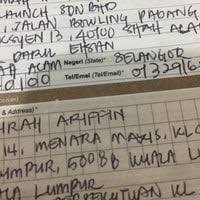 LAUNCH SDN BHD
, JALAN BOWLING PADANG
SEKSYEN 13, 40100 SHAH ALAM
DARUL EHSAN
SHAH ALAM Negeri (State)* SELANGOR
40100 Tel/Emel (Tel/Email)*
& Address)*
ARIFFIN
14, MENARA MAXIS, KLC
LUMPUR, 50088 KUALA LU
KUALA LUMPUR
PERSEKUTUAN KL